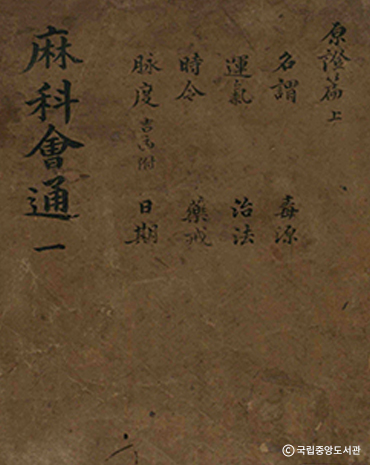 原證篇上
名謂 毒源
運氣 治法
時令 藥戒
脉度 吉凶附 日期
麻科會通 一
ⓒ국립중앙도서관